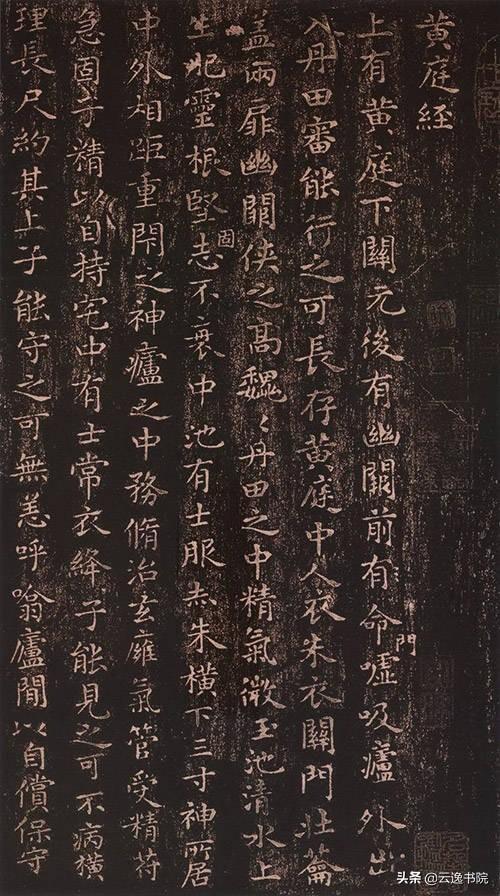 黄庭経
上有黄庭下關元後有幽闕前有命門嘘吸廬外出
入丹田審能行之可長存黄庭中人衣朱衣關門壯蘥
盖兩扉幽闕侠之高魏〻丹田之中精氣微玉池清水上
生肥靈根堅固志不衰中池有士服赤朱横下三寸神所居
中外相距重閇之神廬之中務脩治玄廱氣管受精苻
急固子精以自持宅中有士常衣絳子能見之可不病横
理長尺約其上子能守之可無恙呼噏廬閒以自償保守
头条 @云逸书院